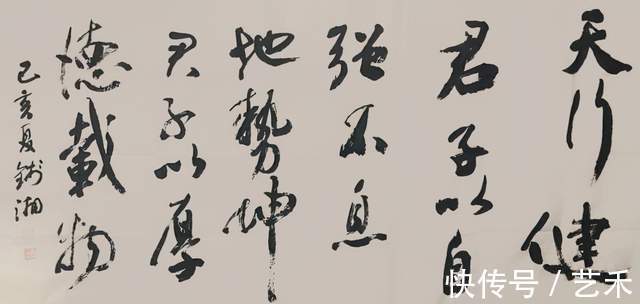 天行健
君子以自
强不息
地势坤
君子以厚
德載物
己亥夏 钱湘
快传号/艺禾